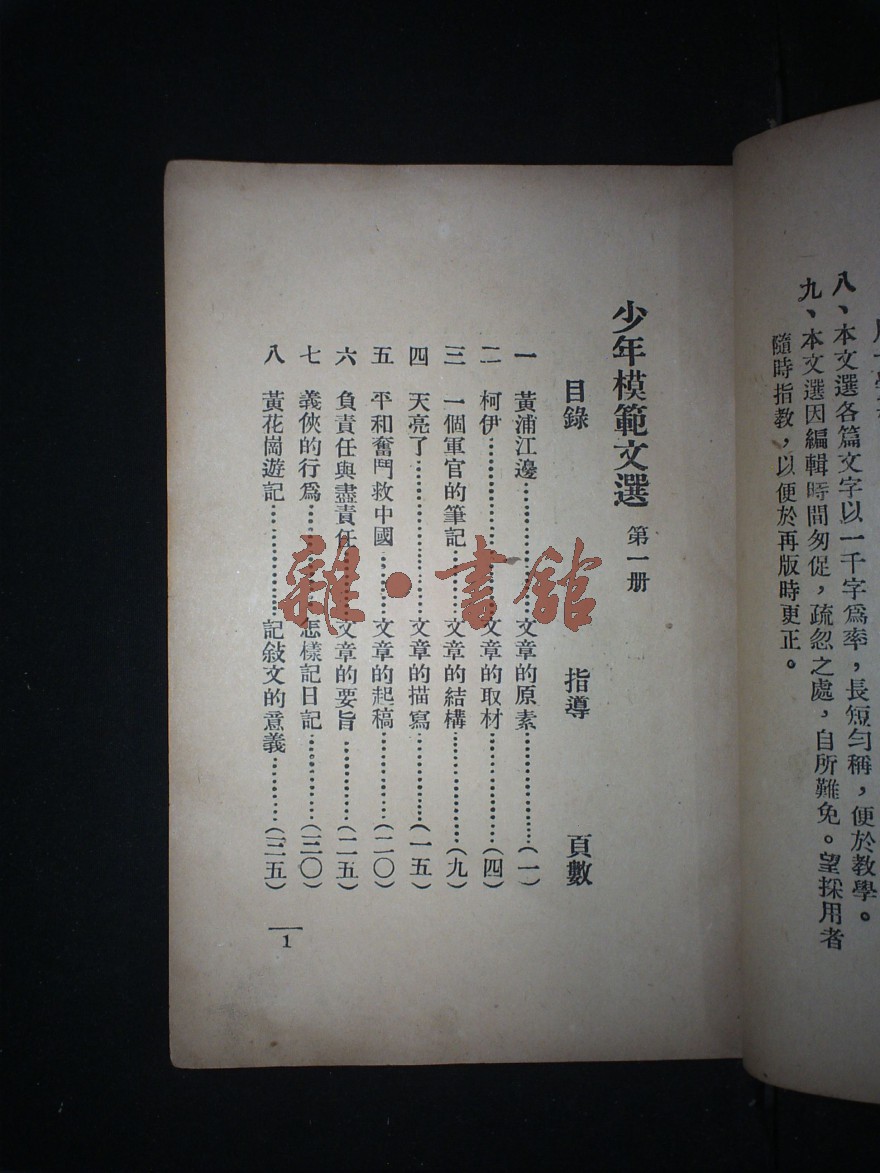 八、本文選各篇文字以一千字爲率，長短勻稱，便於教學。
九、本文選因編輯時間匆促，疏忽之處，自所難免。望採用者
隨時指教，以便於再版時更正。
少年模範文選 第一册
目錄 指導 頁數
一 黃浦江邊……………文章的原素……………(一)
二 柯伊……………文章的取材……………(四)
三 一個軍官的筆記……………文章的結構……………(九)
四 天亮了……………文章的描寫……………(一五)
五 平和奮鬥救中國……………文章的起稿……………(二〇)
六 負責任與盡責任……………文章的要旨……………(二五)
七 義俠的行爲……………怎樣記日記……………(三〇)
八 黃花崗遊記……………記敍文的意義……………(三五)
1
雜·書館